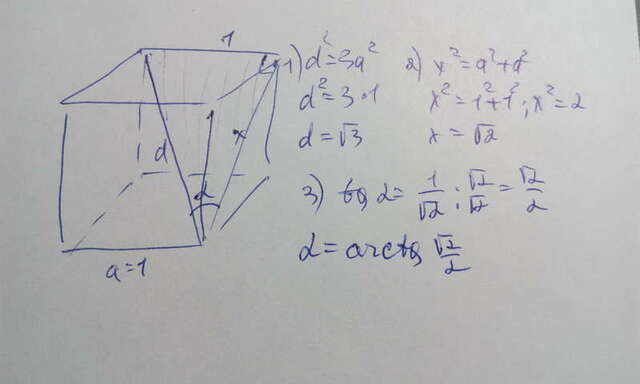 1
1) d²=3a²
d²=3·1
d=√3
2) x²=a²+a²
x²=1²+1²; x²=2
x=√2
d
x
α
a=1
3) tg α= 1/√2 : √2/√2 = √2/2
α=arctg √2/2